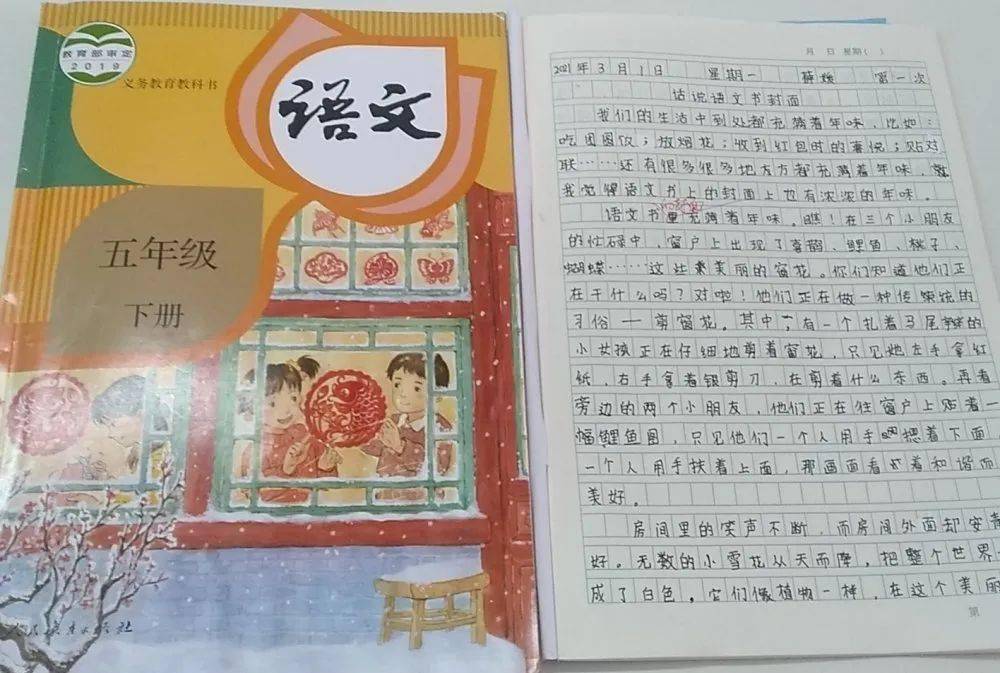 教育部审定
2019
义务教育教科书
语文
五年级
下册
人民教育出版社
月 日 星期( )
2021年3月1日 星期一 第一次
话说语文书封面
我们的生活中到处都充满着年味，比如：
吃团圆饭；放烟花；收到红包时的喜悦；贴对
联……还有很多很多地方方都充满着年味，
我觉得语文书上的封面上也有浓浓的年味。
语文书里充满着年味。瞧！在三个小朋友
的忙碌中，窗户上出现了喜鹊、鲤鱼、桃子、
蝴蝶……这些美丽的窗花。你们知道他们正
在干什么吗？对啦！他们正在做一种传统的
习俗——剪窗花。其中，有一个扎着马尾辫的
小女孩正在仔细地剪着窗花，只见她左手拿红
纸，右手拿着银剪刀，在剪着什么东西。再看
旁边的两个小朋友，他们正在往窗户上贴着一
幅鲤鱼图，只见他们一个人用手摁着下面，
一个人用手扶着上面，那画面看着和谐而
美好。
房间里的笑声不断，而房间外面却安
好。无数的小雪花从天而降，把整个世界
成了白色。它们像植物一样，在这个美丽
第